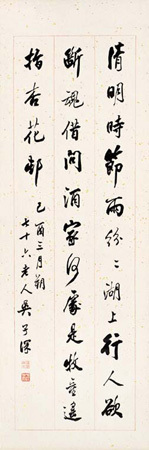 清明時節雨紛〻湖上行人欲
斷魂借問酒家何處是牧童遥
指杏花邨
己酉三月朔
七十六老人吳子深